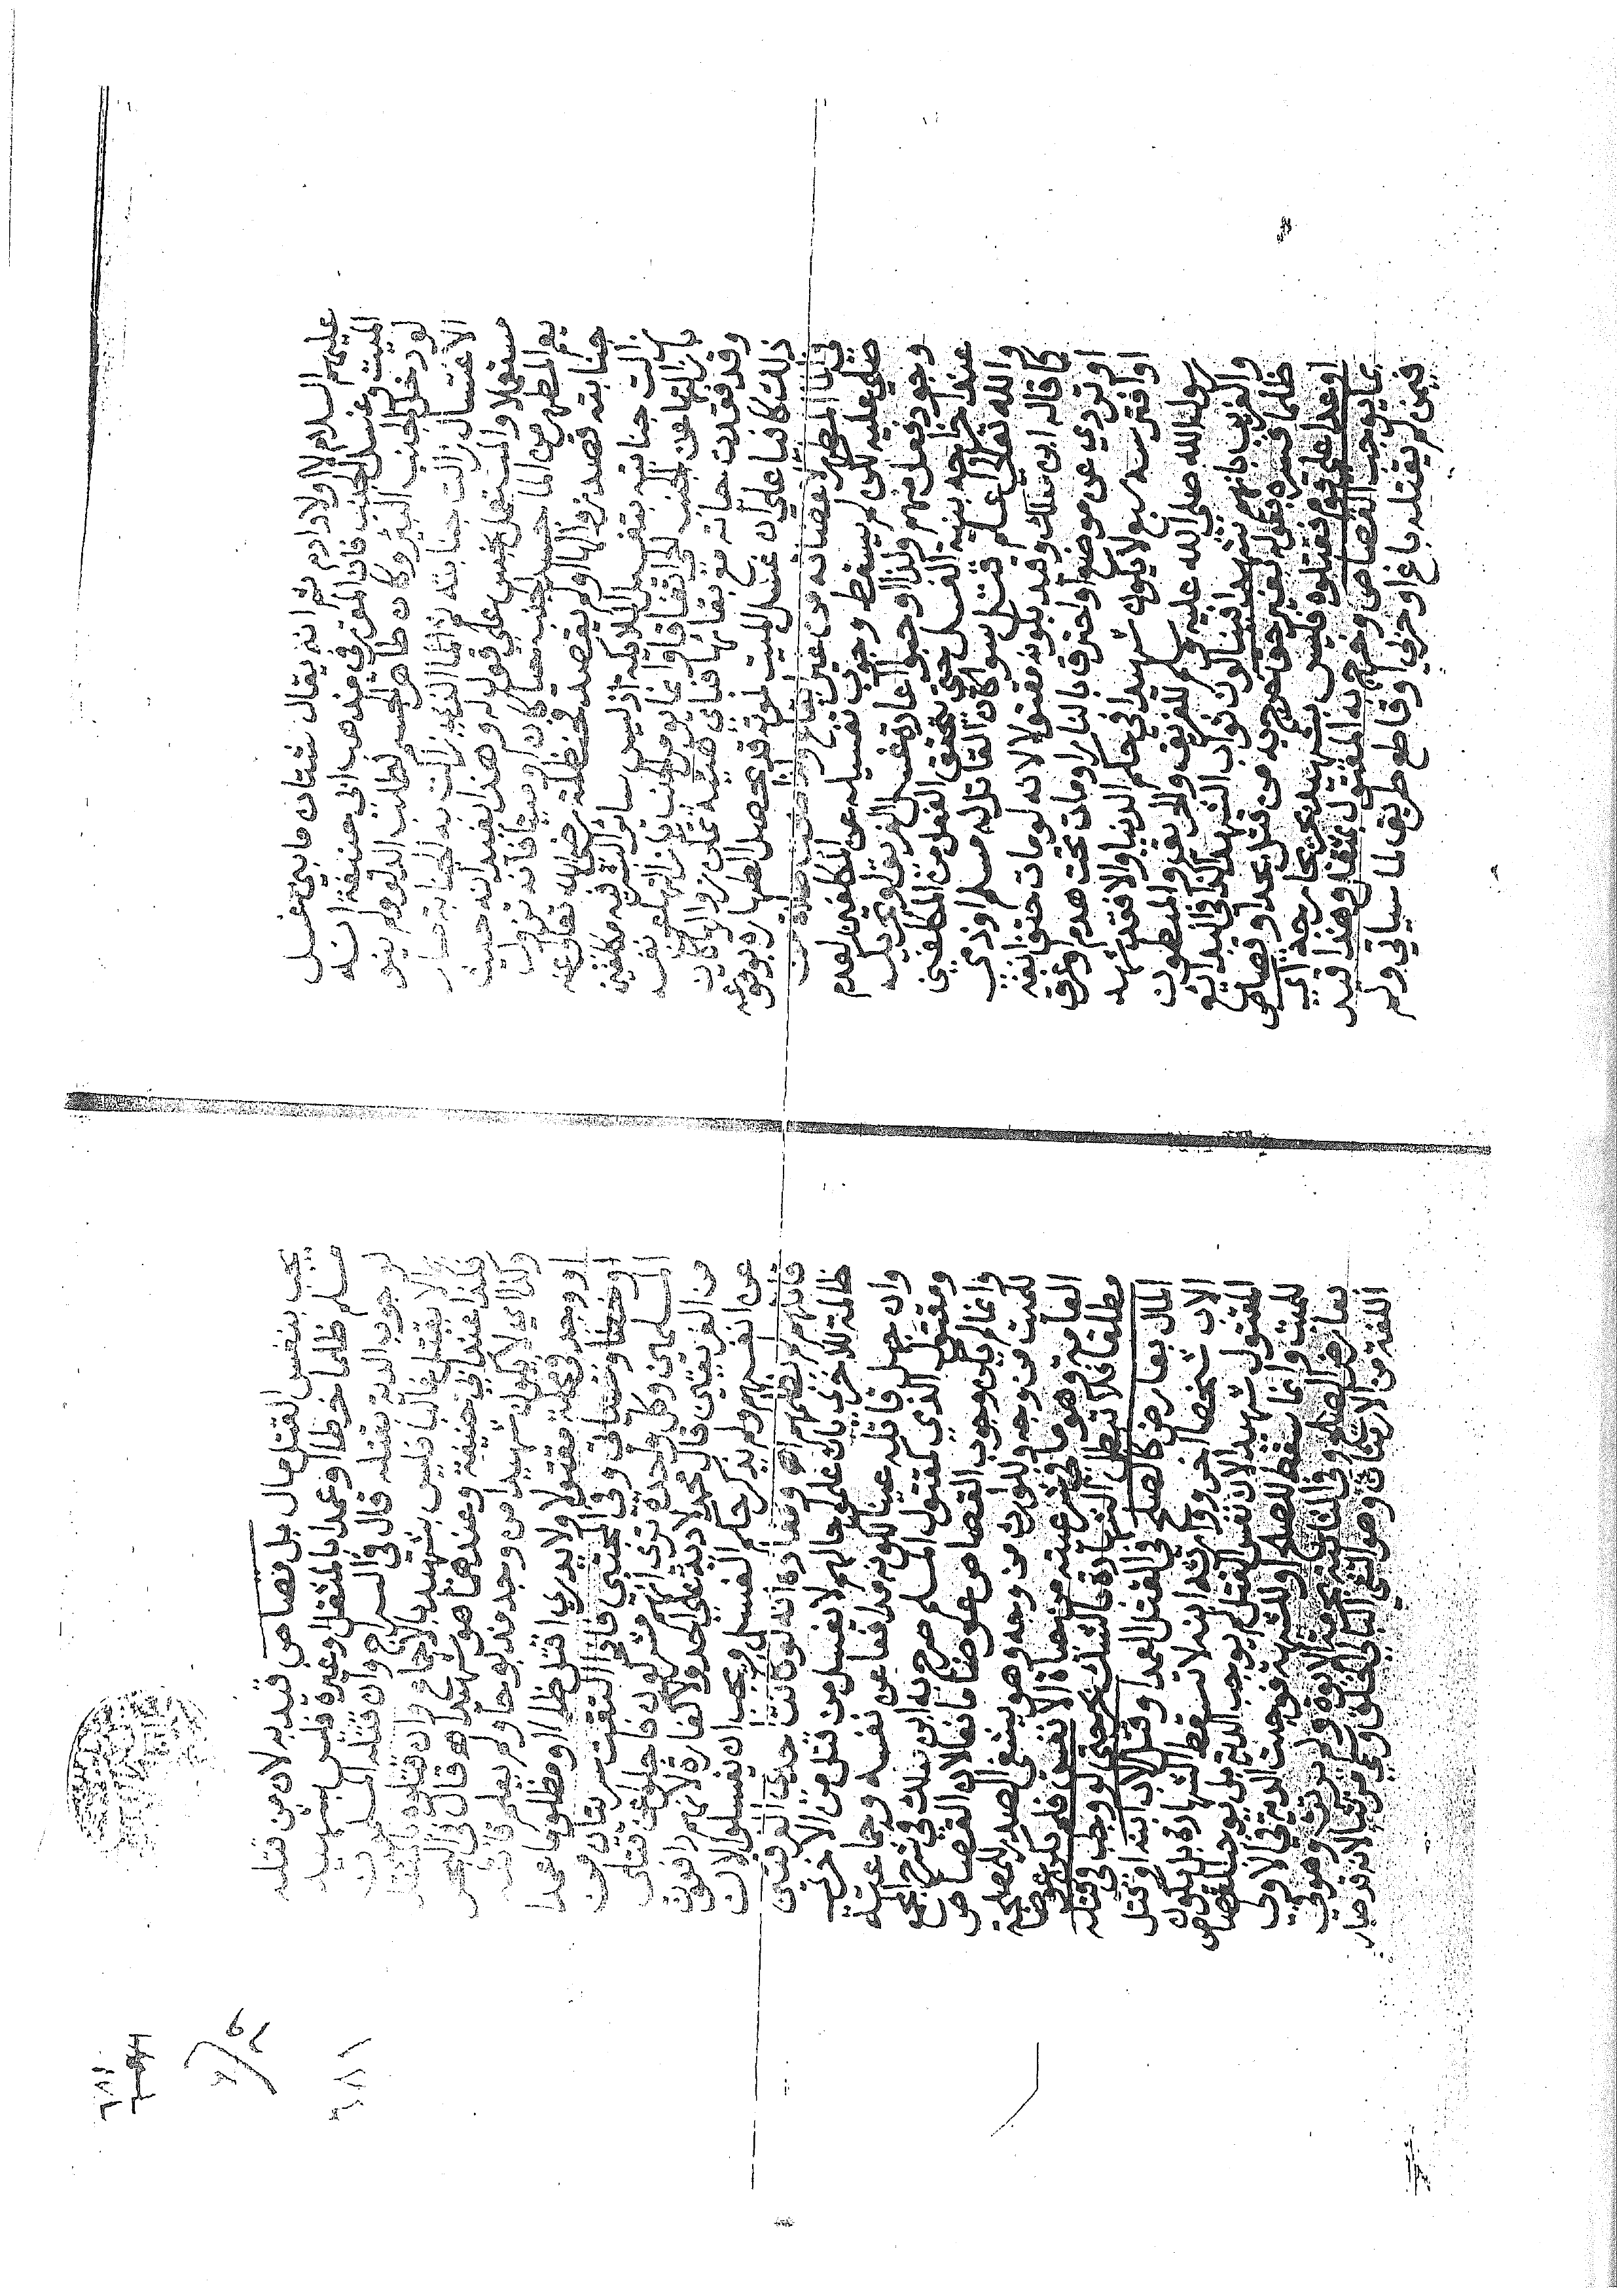 عليهم السلام لاولاد ادم ثم انه يقال شتان ما بين غسل
الميت وغسل الجنب فان المقرر في مذهب ابي حنيفة انه
لو دخل الجنب البئر وكان طاهر الجسد لطلب الدلو ولم ينو
الاغتسال زالت جنابته وانما الذي زالت به الجنابة صار
مستعملا والمستعمل نجس على قوله وهذا يفيد انه حيث
عم المطهر من الماء جسد الجنب حيا كان او ميتا فانه تزول
جنابته قصد زوالها او لم يقصد فحنظلة رضي الله تعالى عنه
زالت جنابته بتغسيل الملائكة اذ ليس سائر الشريعة مكلفين
بازالتها عن الجنب اتفاقا وانما يؤمر الجنب بازالتها عن نفسه
وقد فقدت حياته مع بقائها فناي قضية على زوالها كان
ذلك كافيا على ان غسل الميت لموته قد تحصل الطهارة بوقوعه
في الماء المطهر
صلي عليه لكن لم يسقط وجوب تغسيله عن المكلفين لعدم
وجود فعل منهم ولذا اوجبوا اعادة غسل الغريق او تحريكه
عند اخراجه بنية الغسل حتى يتحقق الفعل من المكلفين
والله تعالى اعلم قتل سوا كان القاتل له مسلم او ذمي
كما قاله ابن ملك وقيد بكونه مقتولا لانه لو مات حتف انفه
او تردي عن موضع او احترق بالنار او مات تحت هدم او غرق
او افترسه سبع لا يكون شهيدا في حكم الدنيا والا فقد شهد
رسول الله صلى الله عليه وسلم للغريق والحريق والمبطون
والغريب بانهم شهدا فينالون ثواب الشهدا كذا في البدايع
ظلما فسره بقوله بغير حق خرج به من قتل بحد او قصاص
او عدا على قوم فقتلوه فليس بشهيد بجارحة اي
بما يوجب القصاص وخرج به المقتول بمثقل وهذا قيد
فيمن لم يقتله باغ او حربي او قاطع طريق لما سياتي ولم
يجب بنفس القتل مال بل قصاص قيد به لان من قتله
مسلم ظلما خطا او عمدا بالمثقل وغيره فليس بشهيد
لوجوب الدية بقتله قال في السراج وان قتله المسلمون
بما لا يقتل غالبا فليس بشهيد بالاجماع وان قتلوه بالمثقل
فكذا عند ابي حنيفة وعندهما هو شهيد اهـ قال في البحر
وكذا لا يكون شهيدا من وجد مذبوحا ولم يعلم قاتله
او وجد في محلة مقتولا ولا يدري اقتل ظلما او مظلوما عمدا
او خطا وسياتي وفي المجتبى فاذا التقت سريتان من
المسلمين وكل واحدة ترى انهم مشركون فاجلوا عن قتلى
من الفريقين قال محمد لا دية على احد ولا كفارة لانهم دافعون
عن انفسهم ولم يذكر حكم الغسل ويجب ان يغسلوا لان
قاتلهم لم يظلمهم اهـ ومفاده انه لو كانت احدى الفرقتين
ظالمة للاخرى بان علموا حالهم لا يغسل من قتل من الاخرى
وان جهل قاتله عينا لكونه مدافعا عن نفسه وجماعته
ومقتول الذمي كمقتول المسلم صرح به ابن ملك في شرح المجمع
وانما لم يكن وجوب القصاص عوضا مانعا لان القصاص
للميت من وجه وللوارث من وجه وهو ينبغي الصدر للمصلحة
العامة وهو ما في شرعيته من حياة الانفس فلم يكن عوضا
مطلقا فلا تبطل الشهادة بالشك حتى لو وجب في قتله
المال بعارض كالصلح في القتل العمد او قتل الاب ابنه او قتل
الان شخصا اخر ووارثه ابنه لا تسقط الشهادة بل يكون
المقتول شهيدا لان نفس القتل لم يوجب الدية بل يوجب القصاص
للميت وانما سقط للصلح او للشبهة فوجبت الدية في الاولى
بعارض الصلح وفي الثانية بحرمة الابوة